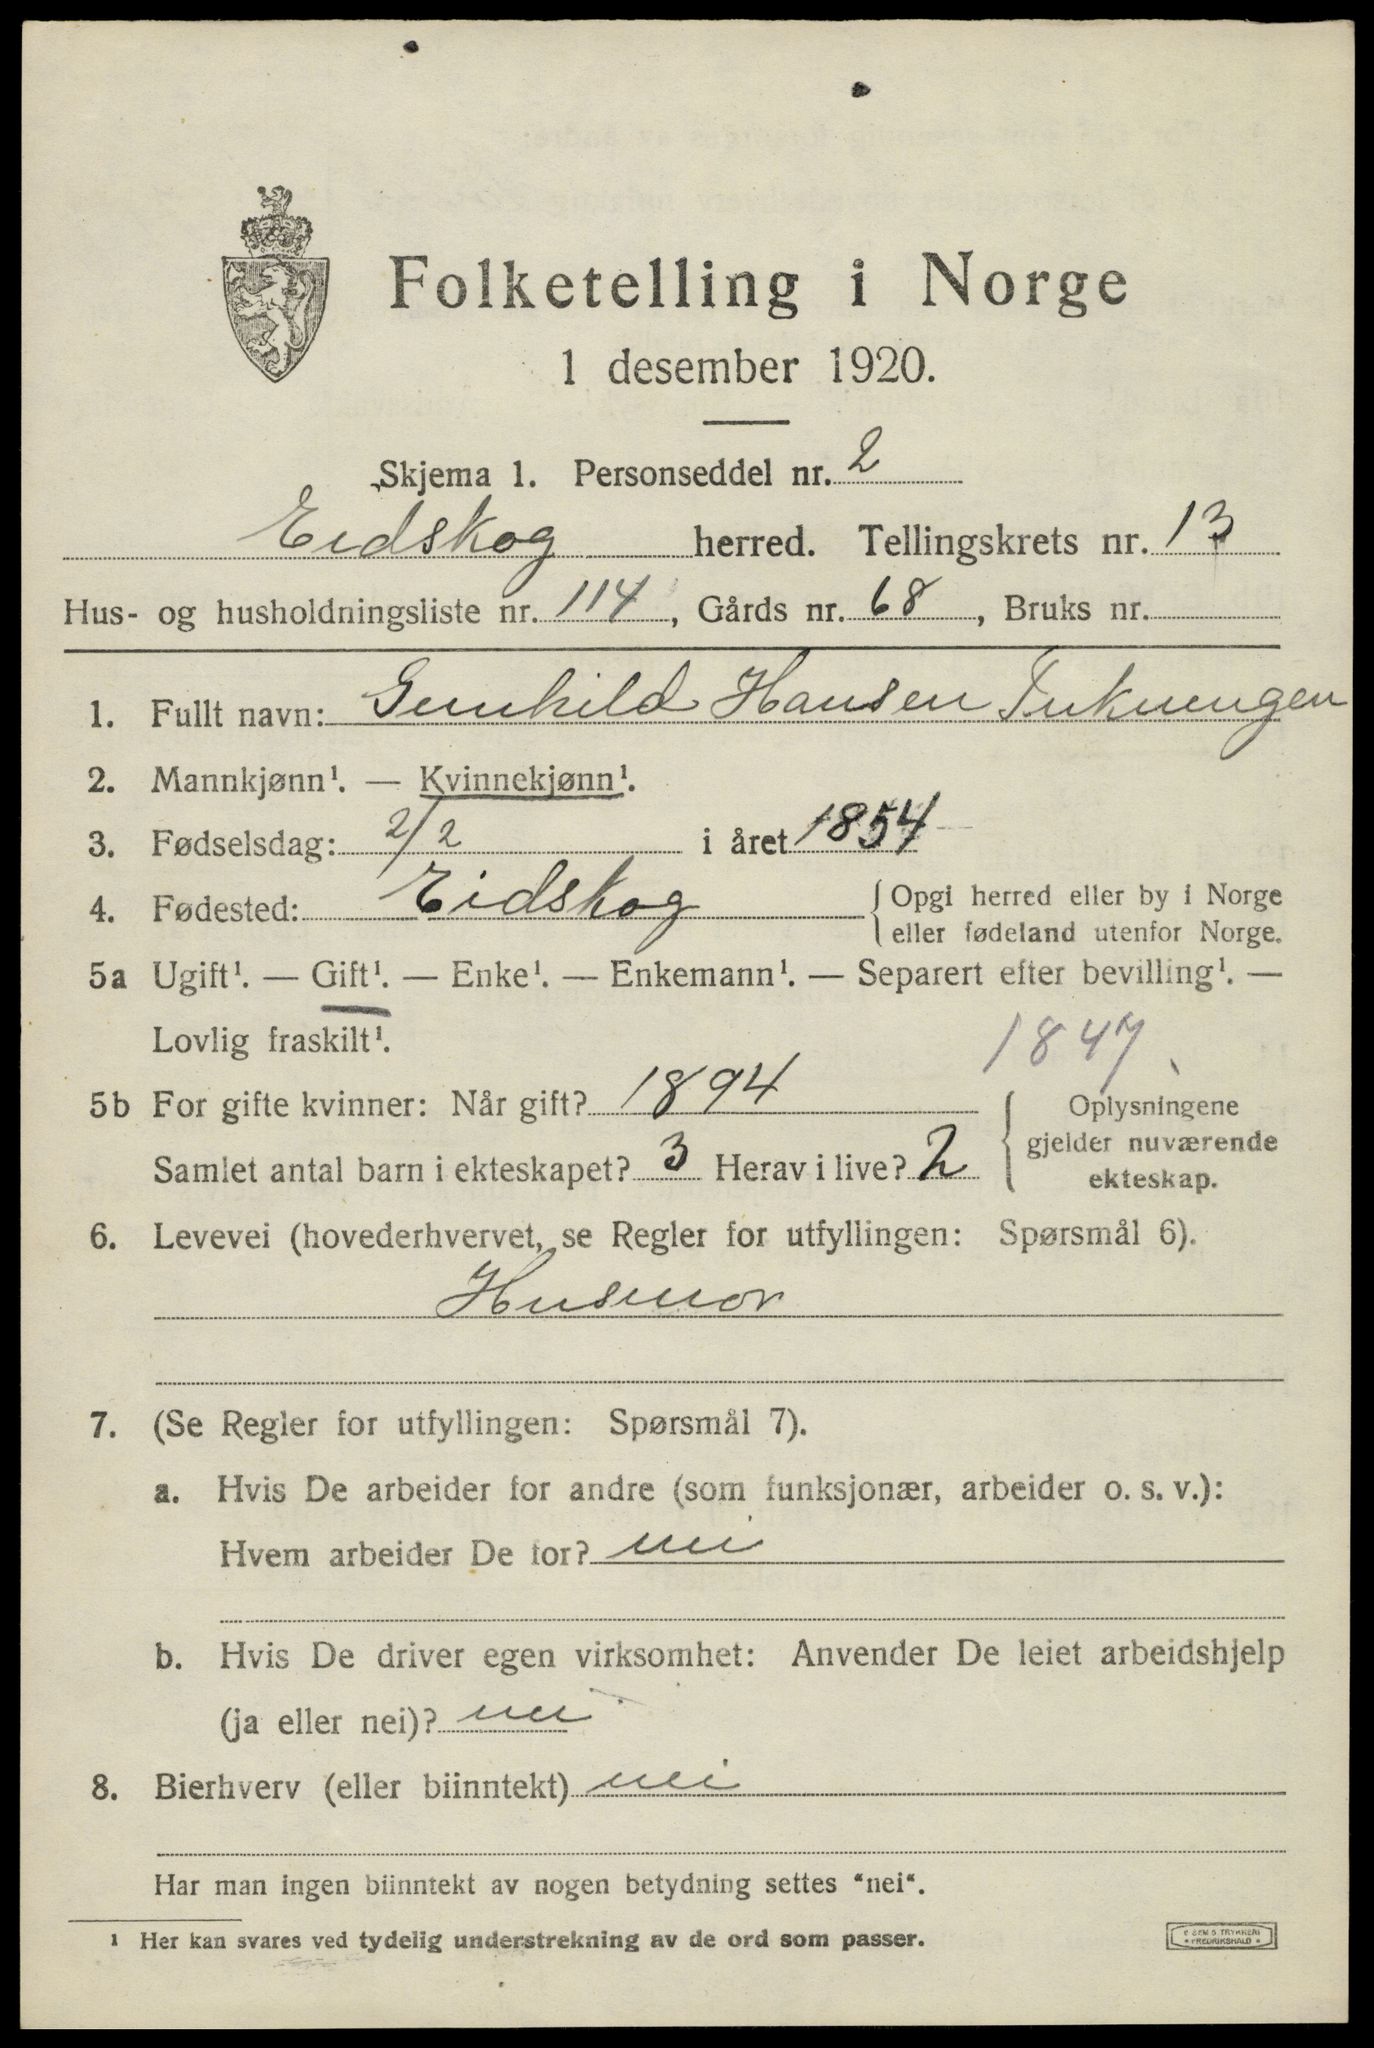 Folketelling i Norge
1 desember 1920.
Skjema 1. Personseddel nr. 2
Eidskog herred. Tellingskrets nr. 13
Hus- og husholdningsliste nr. 114, Gårds nr. 68, Bruks nr.
1. Fullt navn: Gunhild Hansen
2. Mannkjønn¹. — Kvinnekjønn¹.
3. Fødselsdag: 2/2 i året 1854
4. Fødested: Eidskog { Opgi herred eller by i Norge
{ eller fødeland utenfor Norge.
5a Ugift¹. — Gift¹. — Enke¹. — Enkemann¹. — Separert efter bevilling¹. —
Lovlig fraskilt¹.
1847
5b For gifte kvinner: Når gift? 1894
Samlet antal barn i ekteskapet? 3 Herav i live? 2
Oplysningene
gjelder nuværende
ekteskap.
6. Levevei (hovederhvervet, se Regler for utfyllingen: Spørsmål 6).
Husmor
7. (Se Regler for utfyllingen: Spørsmål 7).
a. Hvis De arbeider for andre (som funksjonær, arbeider o. s. v.):
Hvem arbeider De for? nei
b. Hvis De driver egen virksomhet: Anvender De leiet arbeidshjelp
(ja eller nei)? nei
8. Bierhverv (eller biinntekt) nei
Har man ingen biinntekt av nogen betydning settes "nei".
¹ Her kan svares ved tydelig understrekning av de ord som passer.